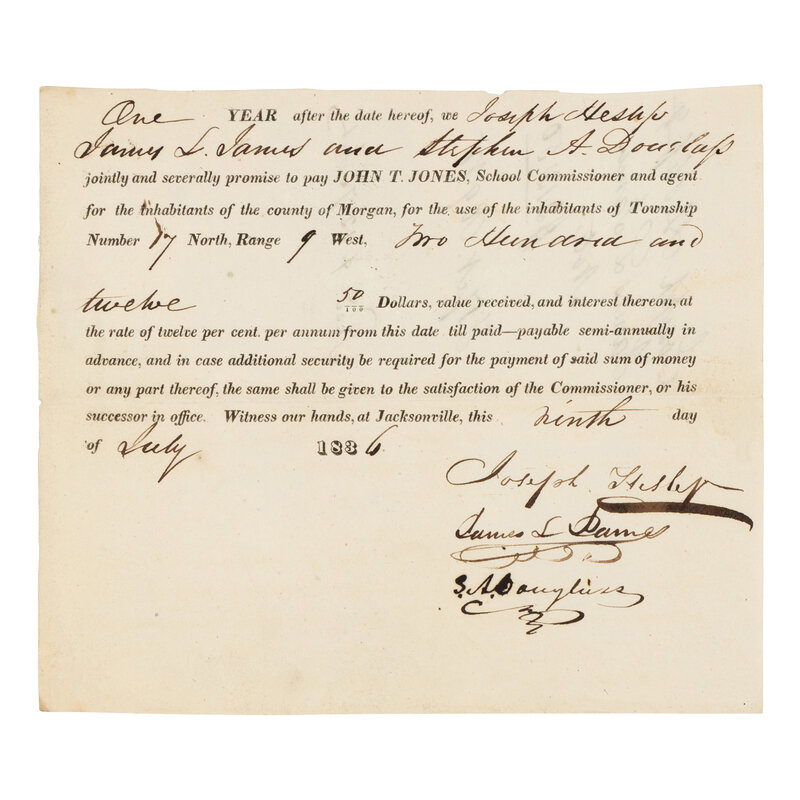 One YEAR after the date hereof, we Joseph Heslep
James L. James and Stephen A. Douglass
jointly and severally promise to pay JOHN T. JONES, School Commissioner and agent
for the inhabitants of the county of Morgan, for the use of the inhabitants of Township
Number 17 North, Range 9 West, Two Hundred and
twelve 50/100 Dollars, value received, and interest thereon, at
the rate of twelve per cent. per annum from this date till paid—payable semi-annually in
advance, and in case additional security be required for the payment of said sum of money
or any part thereof, the same shall be given to the satisfaction of the Commissioner, or his
successor in office. Witness our hands, at Jacksonville, this ninth day
of July 1836
Joseph Heslep
James L James
S. A. Douglass